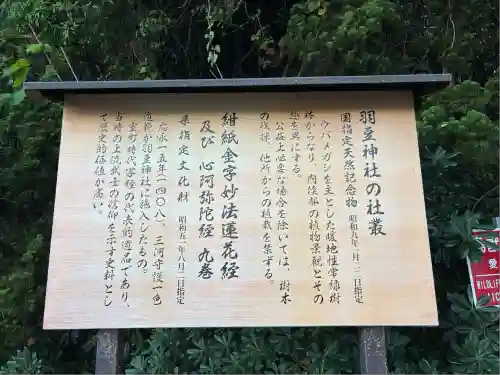 羽豆神社の社叢
国指定天然記念物 昭和九年一月二二日指定
ウバメガシを主とした暖地性常緑樹
林からなり、内陸部の植物景観とその
趣を異にする。
公益上必要な場合を除いては、樹木
の伐採、他所からの植栽を禁ずる。
紺紙金字妙法蓮花経
及び 心阿弥陀経 九巻
県指定文化財 昭和五一年八月二日指定
応永一五年一四〇八、三河守護一色
道範が羽豆神社に施入したもの。
室町時代写経の代表的遺品であり、
当時の上流武士の信仰を示す史料とし
て歴史的価値が高い。
愛
WILDLIFE